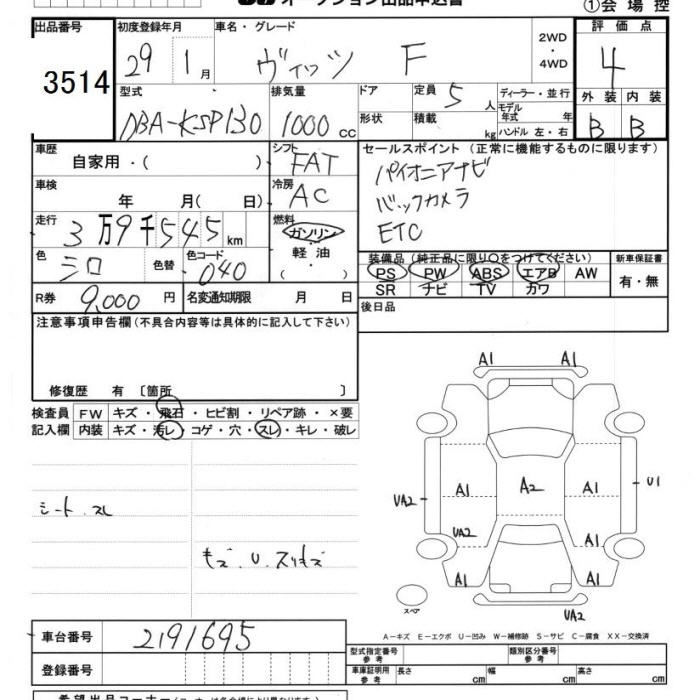 オークション出品申込書
①会場控
出品番号
3514
初度登録年月
29 1月
車名・グレード
ヴィッツ F
2WD
・
4WD
評価点
4
型式
DBA-KSP130
排気量
1000 CC
ドア
形状
定員 5 人
積載 kg
ディーラー・並行
モデル
年式 年
ハンドル 左・右
外装 内装
B B
車歴
自家用・( )
シフト
FAT
車検
年 月(日 )
冷房
AC
走行
3万9千545km
燃料
ガソリン
・
軽油
・
( )
色
シロ
色替
色コード
040
R券
9,000 円
名変通知期限 月 日
セールスポイント (正常に機能するものに限ります)
パイオニアナビ
バックカメラ
ETC
装備品 (純正品に限り○をつけてください)
PS PW ABS エアB AW
SR ナビ TV カワ
新車保証書
有・無
後日品
注意事項申告欄 (不具合内容等は具体的に記入して下さい)
修復歴 有 〔箇所 〕
検査員
記入欄
FW キズ・飛石・ヒビ割・リペア跡・×要
内装 キズ・汚レ・コゲ・穴・スレ・キレ・破レ
シート.スレ
キズ.U.スリキズ
A1 A1
UA2 A1 A2 A1 U1
UA2 A1
A1 A1
スペア
UA2
A-キズ E-エクボ U-凹み W-補修跡 S-サビ C-腐食 XX-交換済
車台番号
2191695
登録番号
型式指定番号
参考
類別区分番号
参考
車庫証明用
参考
長さ cm
幅 cm
高さ cm